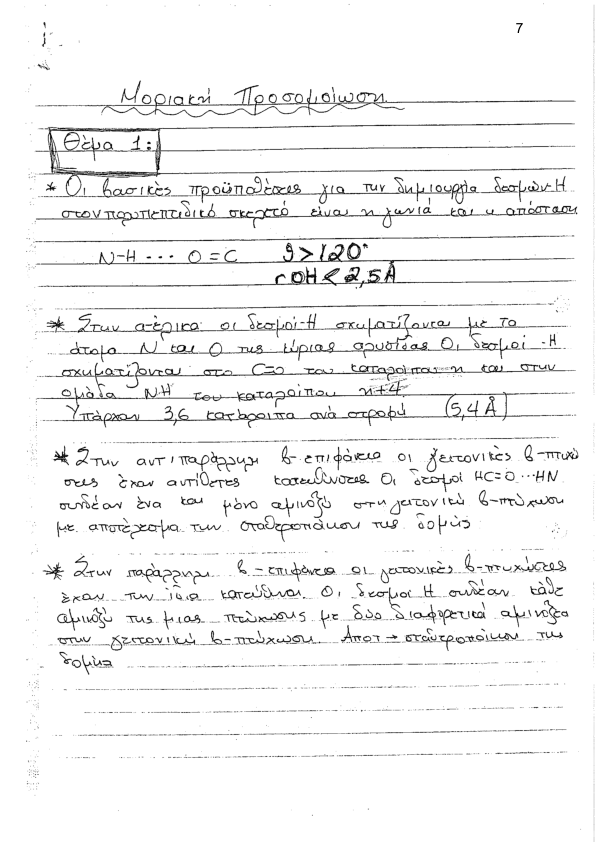 7
Μοριακή Προσομοίωση
Θέμα 1:
* Οι βασικές προϋποθέσεις για την δημιουργία δεσμών-Η
στον πολυπεπτιδικό σκελετό είναι η γωνιά και η απόσταση
N-H ··· O=C θ>120°
rOH<2,5Å
* Στην α-έλικα οι δεσμοί-Η σχηματίζονται με τα
άτομα Ν και Ο της κύριας αλυσίδας Οι δεσμοί -Η
σχηματίζονται στο C=O του καταλοίπου n και στην
ομάδα NH του καταλοίπου n+4.
Υπάρχουν 3,6 κατάλοιπα ανά στροφή (5,4 Å)
* Στην αντιπαράλληλη β-επιφάνεια οι γειτονικές β-πτυχώ
σεις έχουν αντίθετες κατευθύνσεις Οι δεσμοί HC=O···HN
συνδέουν ένα και μόνο αμινοξύ στη γειτονική β-πτύχωση
με αποτέλεσμα την σταθεροποίηση της δομής
* Στην παράλληλη β-επιφάνεια οι γειτονικές β-πτυχώσεις
έχουν την ίδια κατεύθυνση. Οι δεσμοί Η συνδέουν κάθε
αμινοξύ της μιας πτύχωσης με δύο διαφορετικά αμινοξέα
στην γειτονική β-πτύχωση. Αποτ → σταθεροποίηση της
δομής